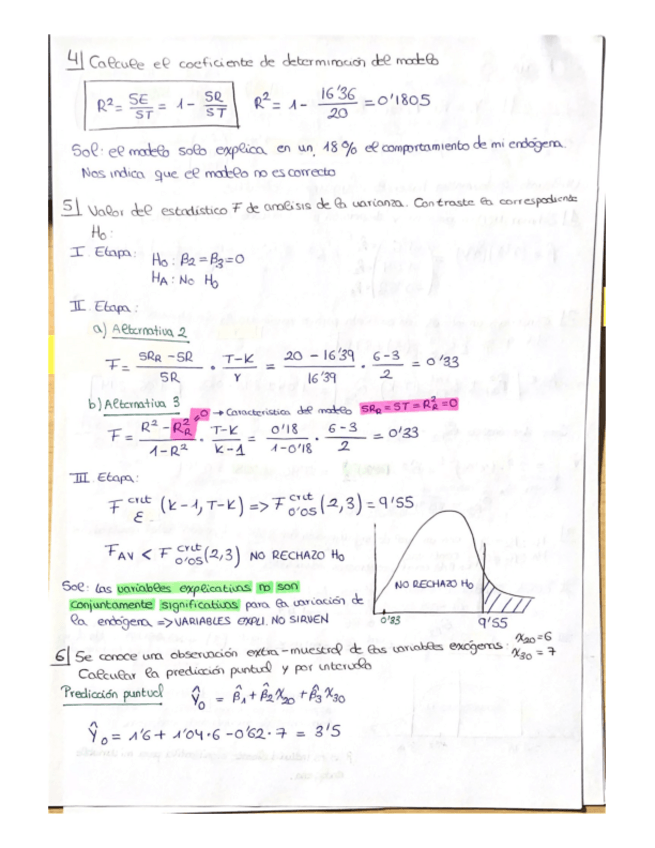 4| Calcule el coeficiente de determinación del modelo
R² = SE/ST = 1 - SR/ST   R² = 1 - 16'36/20 = 0'1805
Sol: el modelo solo explica en un 18% el comportamiento de mi endógena.
Nos indica que el modelo no es correcto
5| Valor del estadístico F de analisis de la varianza. Contraste la correspondiente
H₀:
I Etapa: H₀: β₂ = β₃ = 0
H_A: No H₀
II Etapa:
a) Alternativa 2
F = (SR_R - SR)/SR · (T-K)/r = (20 - 16'39)/16'39 · (6-3)/2 = 0'33
b) Alternativa 3
→ Característica del modelo SR_R = ST = R²_R = 0
F = (R² - R²_R → 0)/(1 - R²) · (T-K)/(K-1) = 0'18/(1-0'18) · (6-3)/2 = 0'33
III Etapa:
F^crit_ε (K-1, T-K) => F^crit_0'05 (2,3) = 9'55
F_AV < F^crit_0'05 (2,3) NO RECHAZO H₀
NO RECHAZO H₀
0'33
9'55
Sol: Las variables explicativas no son
conjuntamente significativas para la variación de
la endógena => VARIABLES EXPLI. NO SIRVEN
6| Se conoce una observación extra-muestral de las variables exógenas: x₂₀ = 6
x₃₀ = 7
Calcular la predicción puntual y por intervalo
Predicción puntual   Ŷ₀ = β̂₁ + β̂₂X₂₀ + β̂₃X₃₀
Ŷ₀ = 1'6 + 1'04·6 - 0'62·7 = 3'5